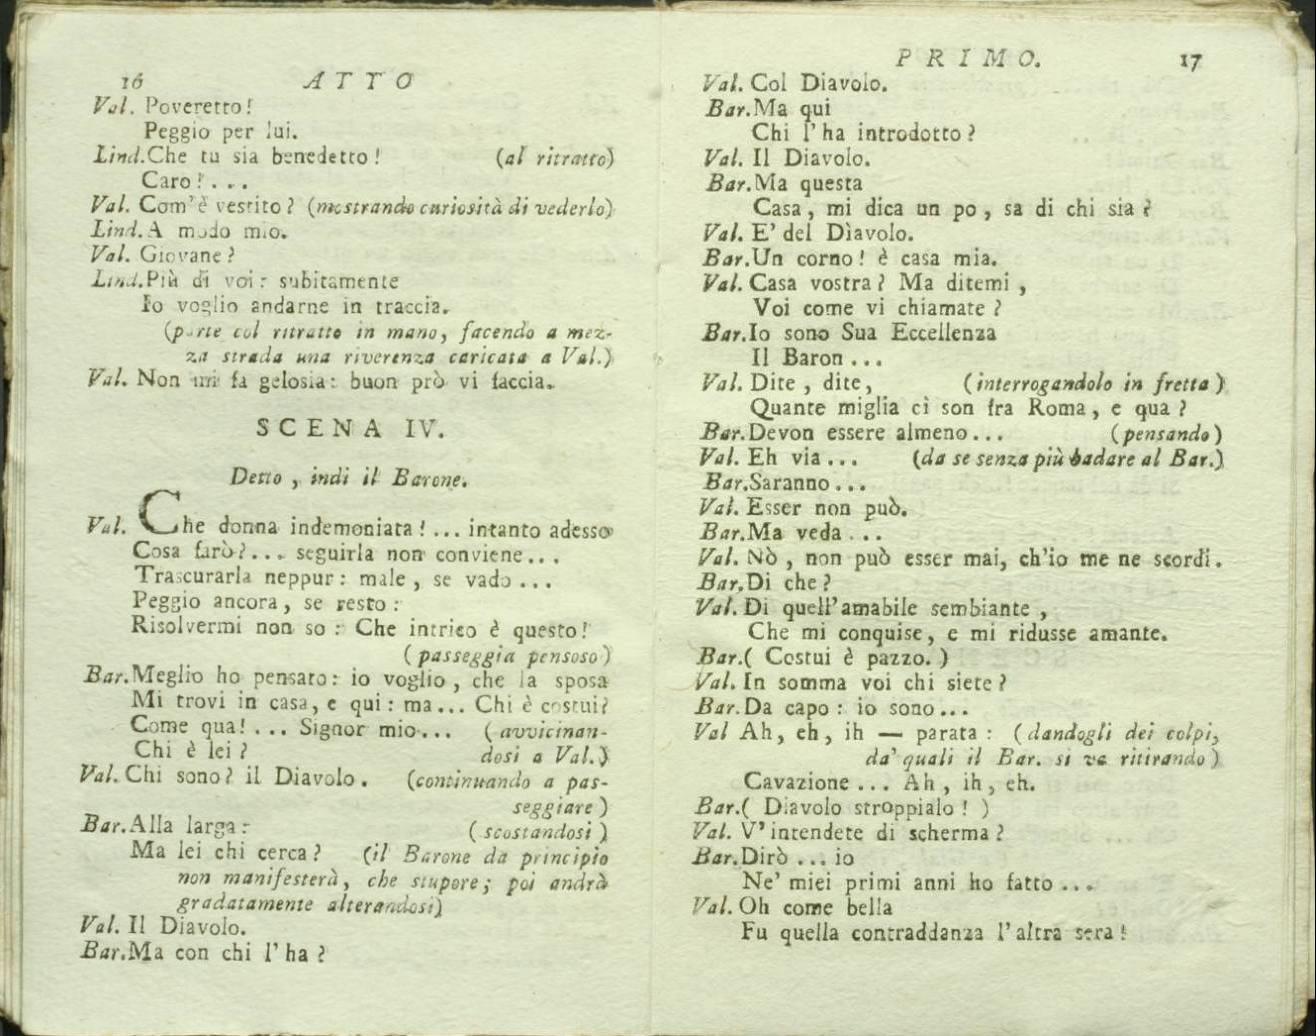 16 ATTO
Val. Poveretto!
Peggio per lui.
Lind. Che tu sia benedetto! (al ritratto)
Caro!...
Val. Com'è vestito? (mostrando curiosità di vederlo)
Lind. A modo mio.
Val. Giovane?
Lind. Più di voi: subitamente
Io voglio andarne in traccia.
(parte col ritratto in mano, facendo a mez-
za strada una riverenza caricata a Val.)
Val. Non mi fa gelosia: buon prò vi faccia.
SCENA IV.
Detto, indi il Barone.
Val. Che donna indemoniata!... intanto adesso
Cosa farò?... seguirla non conviene...
Trascurarla neppur: male, se vado...
Peggio ancora, se resto:
Risolvermi non so: Che intrico è questo!
(passeggia pensoso)
Bar. Meglio ho pensato: io voglio, che la sposa
Mi trovi in casa, e qui: ma... Chi è costui?
Come qua!... Signor mio... (avvicinan-
Chi è lei? dosi a Val.)
Val. Chi sono? il Diavolo. (continuando a pas-
seggiare)
Bar. Alla larga: (scostandosi)
Ma lei chi cerca? (il Barone da principio
non manifesterà, che stupore; poi andrà
gradatamente alterandosi)
Val. Il Diavolo.
Bar. Ma con chi l'ha?
PRIMO. 17
Val. Col Diavolo.
Bar. Ma qui
Chi l'ha introdotto?
Val. Il Diavolo.
Bar. Ma questa
Casa, mi dica un po, sa di chi sia?
Val. E' del Diavolo.
Bar. Un corno! è casa mia.
Val. Casa vostra? Ma ditemi,
Voi come vi chiamate?
Bar. Io sono Sua Eccellenza
Il Baron...
Val. Dite, dite, (interrogandolo in fretta)
Quante miglia ci son fra Roma, e qua?
Bar. Devon essere almeno... (pensando)
Val. Eh via... (da se senza più badare al Bar.)
Bar. Saranno...
Val. Esser non può.
Bar. Ma veda...
Val. Nò, non può esser mai, ch'io me ne scordi.
Bar. Di che?
Val. Di quell'amabile sembiante,
Che mi conquise, e mi ridusse amante.
Bar. (Costui è pazzo.)
Val. In somma voi chi siete?
Bar. Da capo: io sono...
Val Ah, eh, ih — parata: (dandogli dei colpi,
da' quali il Bar. si va ritirando)
Cavazione... Ah, ih, eh.
Bar. (Diavolo stroppialo!)
Val. V'intendete di scherma?
Bar. Dirò... io
Ne' miei primi anni ho fatto...
Val. Oh come bella
Fu quella contraddanza l'altra sera!